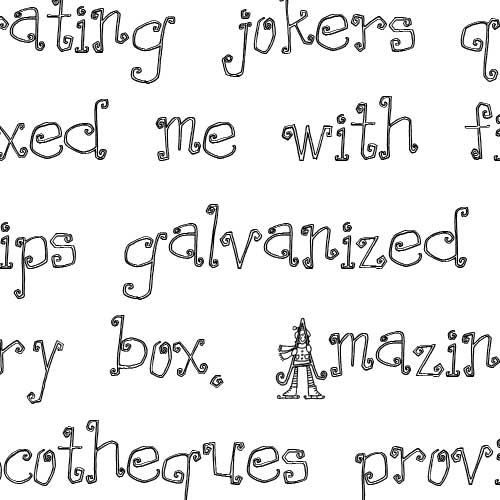 ating jokers q
xed me with fi
ips galvanized
ry box. Amazin
cotheques prov